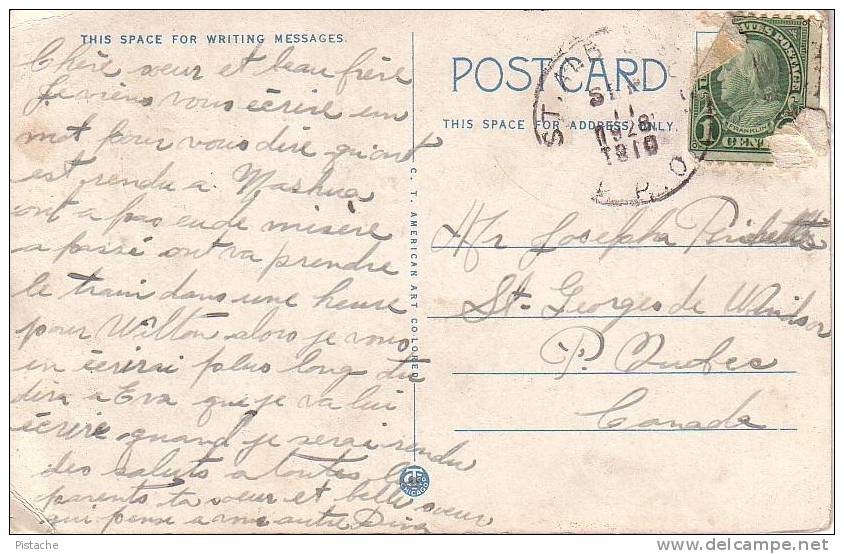 THIS SPACE FOR WRITING MESSAGES.
Chère soeur et beau frère
Je viens vous écrire un
mot pour vous dire qu'ont
est rendu a Nashua
ont a pas eude misère
a passé ont va prendre
le train dans une heure
pour Wilton alors je vous
en écrirai plus long tu
dira a Eva que je va lui
écrire quand je serai rendu
des saluts a toutes
parents ta soeur et belle soeur
qui pense a
C. T. AMERICAN ART COLORED
CHICAGO
POST CARD
THIS SPACE FOR ADDRESS ONLY.
ST.
11
1928
R.P.O.
POSTAGE
FRANKLIN
1 CENT
Mr Josepha
St. Georges de Windsor
P. Quebec
Canada
Pistache
www.delcampe.net